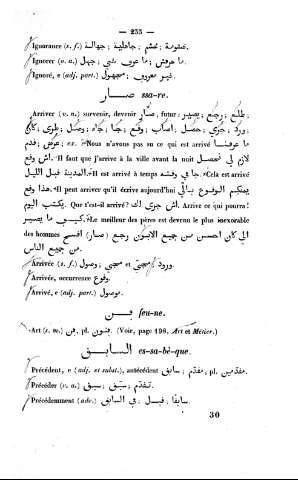 — 233 —
Ignorance (s. f.) جهالة ; جاهلية ; غشم ;
Ignorer (v. a.) جهل ; ما عرف شي ; ما عرفش
Ignoré, e (adj. part.) مجهول ; غير معروف
صار ssa-re.
Arriver (v. a.) survenir, devenir صار, futur: يصير ; رجع ; طلع ;
كان ; طرى ; وصل ; جاء ; وقع ; اصاب ; حصل ; جرى ; ورد ;
قدم ; عرض ; ex. «Nous n'avons pas su ce qui est arrivé ما عرفنا
اش وقع». «Il faut que j'arrive à la ville avant la nuit لازم لي نحصل
المدينة قبل الليل». «Il est arrivé à temps جا في وقته». «Cela est arrivé
هذا وقع». «Il peut arriver qu'il écrive aujourd'hui يمكنهم الوقوع بالي
يكتب اليوم». «Que t'est-il arrivé? اش جرى لك». Arrive ce qui pourra!
كيف ما يصير. «Le meilleur des pères est devenu le plus inexorable
des hommes الي كان احسن من جميع الابون رجع (صار) اقسح
من جميع الناس
Arrivée (s. f.) وصول ; مجي et مجيى ; ورود
Arrivée, occurrence وقوع
Arrivé, e (adj. part.) موصول
فن feu-ne.
Art (s. m.) فن, pl. فنون. (Voir, page 198, Art et Métier.)
السابق es-sa-bè-que.
Précédent, e (adj. et subst.), antécédent سابق ; مقدم, pl. مقدمين
Précéder (v. a.) سبق ; سبّق ; تقدم
Précédemment (adv.) في السابق ; قبل ; سابقا
30